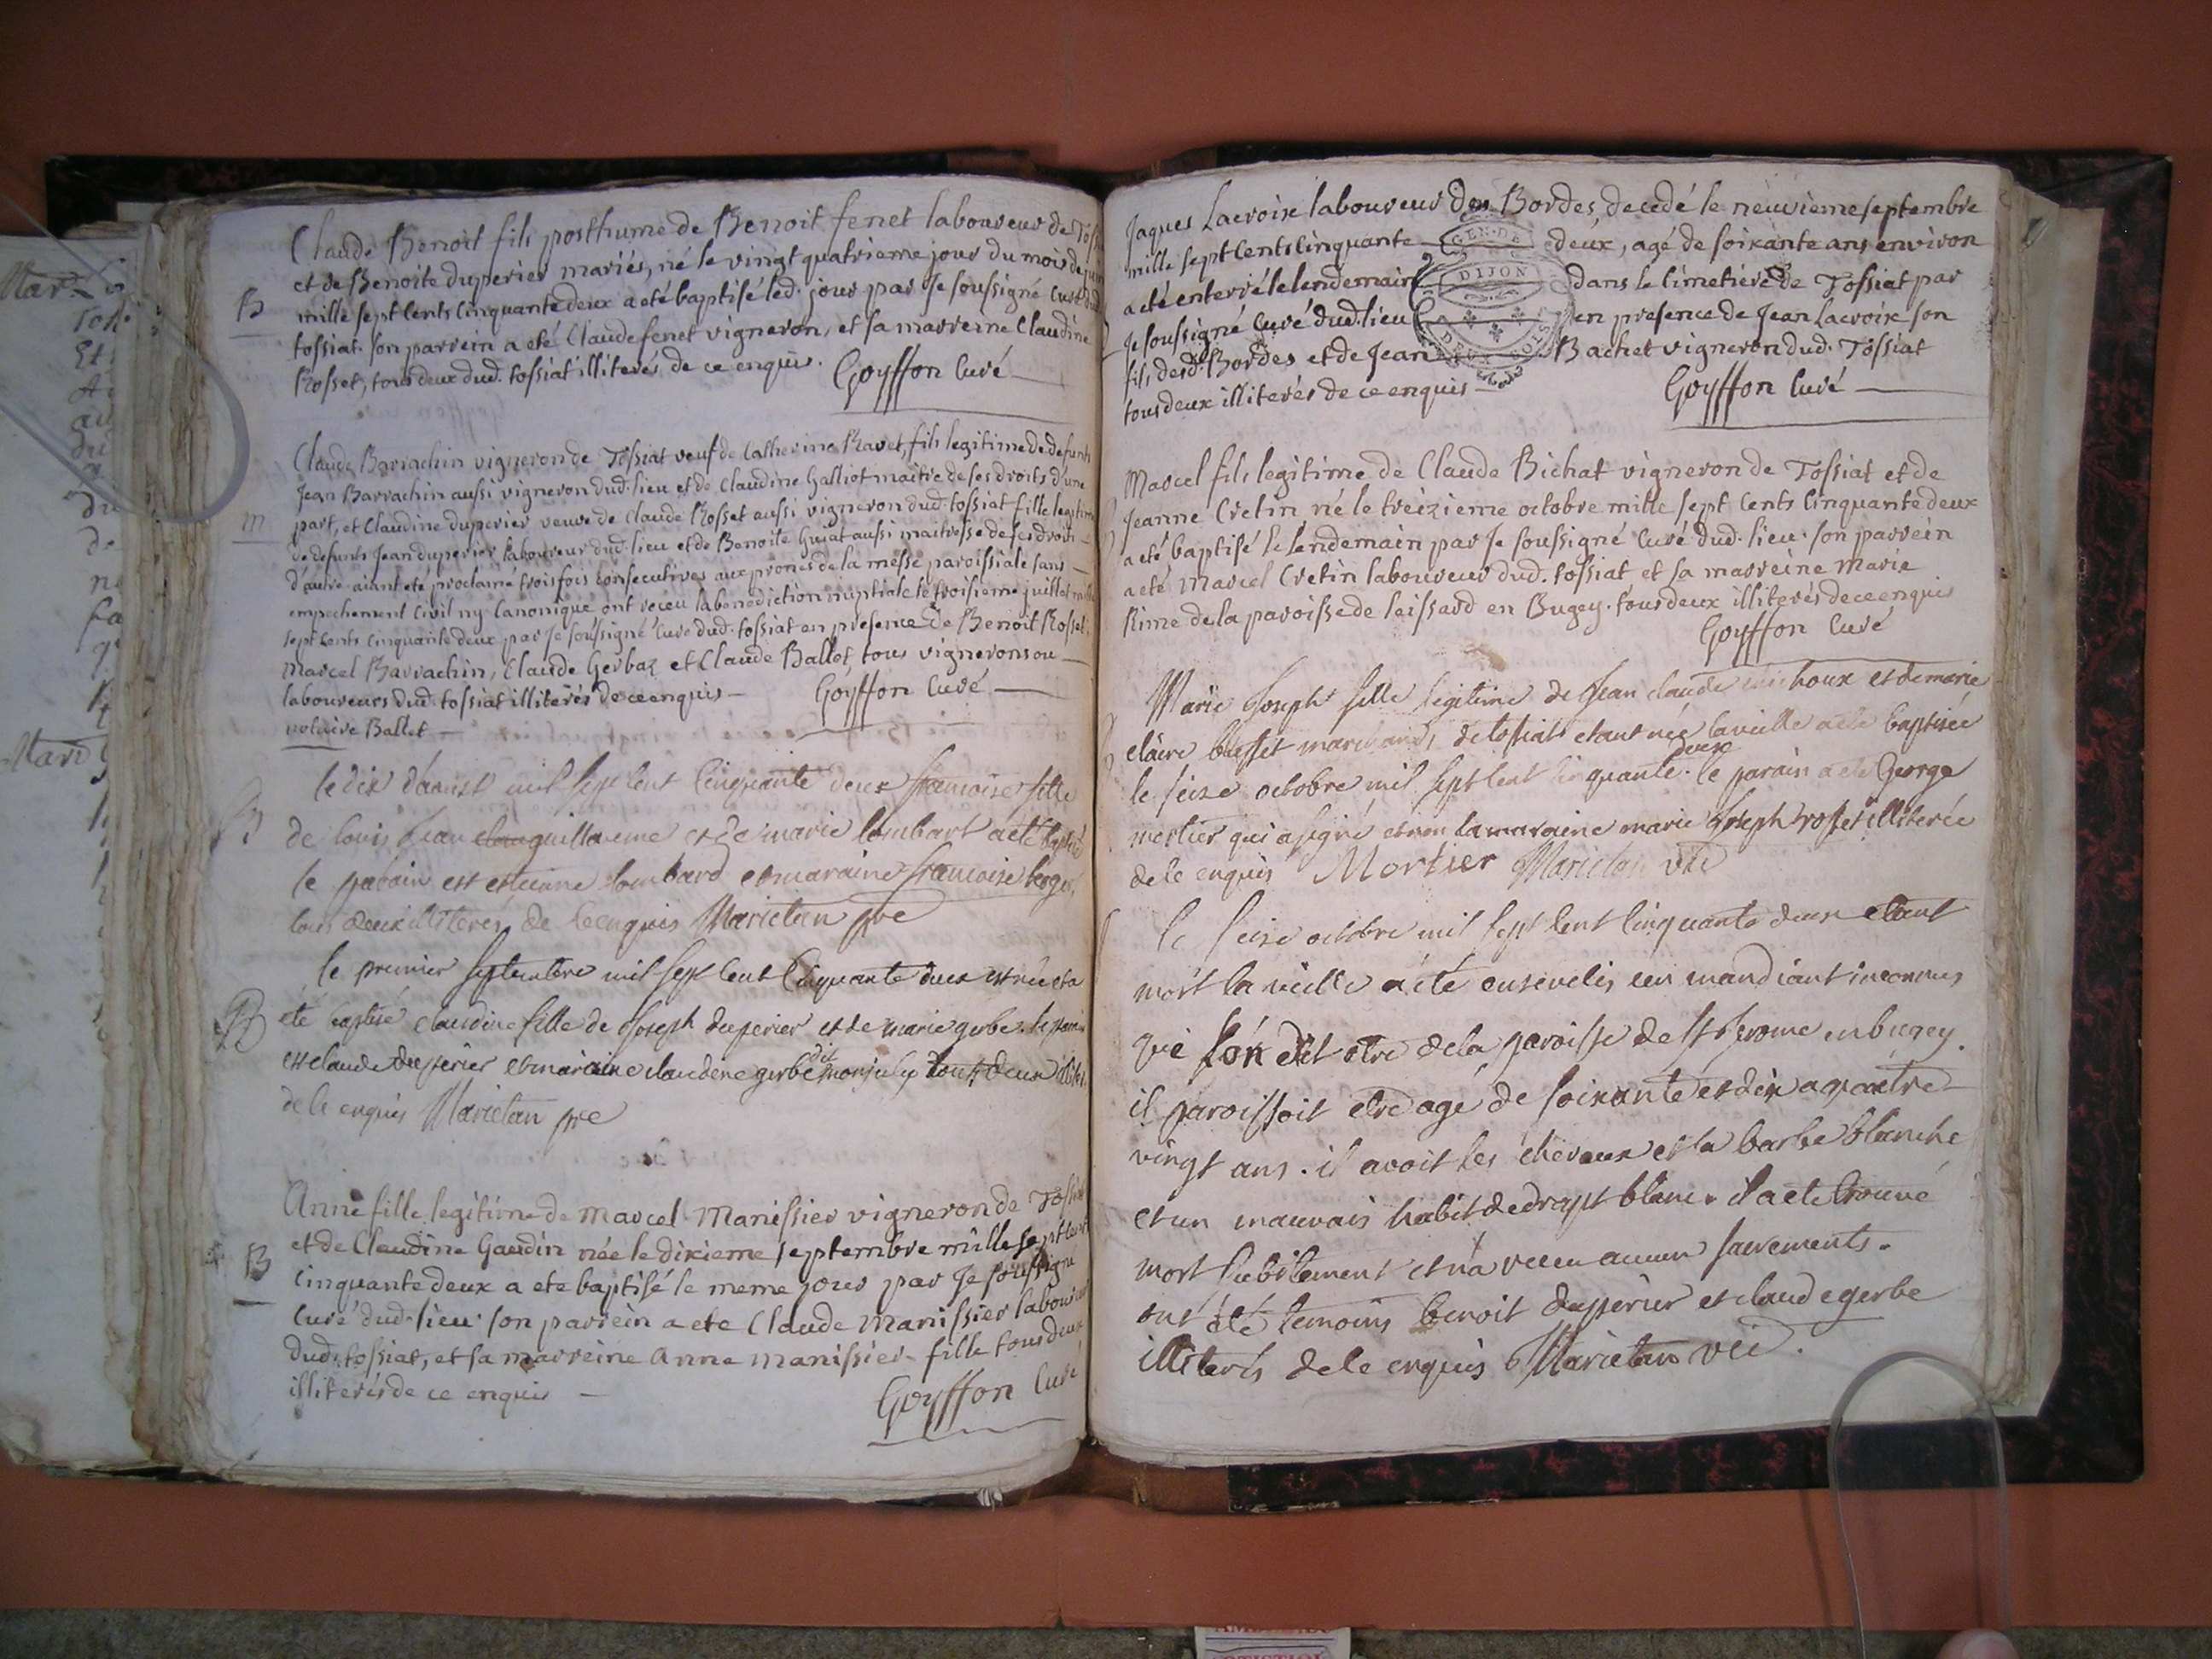 Claude Benoit fils posthume de Benoit fenet laboureur de
et de Benoite duperier mariés, né le vingt quatrieme jour du mois de
B
mille sept cents cinquante deux a eté baptisé led. jour par Je soussigné curé dud
tossiat. son parrein a eté Claude fenet vigneron, et sa marreine Claudine
Rosset, tous deux dud. tossiat illiterés de ce enquis. Goyffon curé
Claude Barrachin vigneron de Tossiat veuf de Catherine Ravet, fils legitime de defunts
Jean Barrachin aussi vigneron dud. lieu et de Claudine Galliot maitre de ses droits d'une
m
part, et Claudine duperier veuve de Claude Rosset aussi vigneron dud. tossiat fille legitime
de defunts Jean duperier laboureur dud. lieu et de Benoite Guiat aussi maitresse de ses droits
d'autre aiant eté proclamé trois fois consecutives aux prones de la messe paroissiale sans
empechement civil ny canonique ont receu la benediction nuptiale le troisieme juillet mille
sept cents cinquante deux par Je soussigné curé dud. tossiat en presence de Benoit Rosset,
Marcel Barrachin, Claude Gerbaz et Claude Ballet, tous vignerons ou
laboureurs dud. tossiat illiterés de ce enquis Goyffon curé
notaire Ballet
le dix d'aoust mil sept cent cinquante deux francoise fille
B
de louis Jean guillaume et de marie lombart a eté baptisé
le parain est estienne lombard et maraine francoise
tous deux illiterés de ce enquis Marietan pre
le premier septembre mil sept cent cinquante deux est née et a
B
eté baptisé claudine fille de Joseph duperier et de marie gerbe. le parain
est claude duperier et maraine claudine gerbe dit tout deux
de ce enquis Marietan pre
Anne fille legitime de Marcel Manissier vigneron de Tossiat
et de Claudine Gaudin née le dixieme septembre mille sept cent
B
cinquante deux a ete baptisé le meme jour par Je soussigné
curé dud. lieu. son parrein a ete Claude Manissier laboureur
dud. tossiat, et sa marreine Anne Manissier fille tous deux
illiterés de ce enquis
Goyffon Curé
Jaques Lacroix laboureur des Bordes, decedé le neuvieme septembre
mille sept cents cinquante deux, agé de soixante ans environ
a eté enterré le lendemain dans le cimetiere de Tossiat par
Je soussigné curé dud. lieu en presence de Jean Lacroix son
fils desd. Bordes et de Jean Bachet vigneron dud. Tossiat
tous deux illiterés de ce enquis Goyffon curé
GEN. DE
DIJON
DEUX SOLS
Marcel fils legitime de Claude Bichat vigneron de Tossiat et de
Jeanne Cretin né le treizieme octobre mille sept cents cinquante deux
a eté baptisé le lendemain par Je soussigné curé dud. lieu. son parrein
a eté Marcel Cretin laboureur dud. tossiat et sa marreine marie
Rime de la paroisse de leissard en Bugey. tous deux illiterés de ce enquis
Goyffon Curé
Marie Joseph fille legitime de Jean claude et de marie
claire busset marchands de tossiat etant née la veille a ete baptisée
le seize octobre mil sept cent cinquante deux. le parain a ete George
mortier qui a signé et non la maraine marie Joseph rosset illiterée
de ce enquis Mortier Marietan
le seize octobre mil sept cent cinquante deux etant
mort la veille a été enseveli, un mandiant inconnus
que lon dit etre de la paroisse de st Jerome en bugey.
il paroissoit etre agé de soixante et dix a quatre
vingt ans. il avoit les cheveux et la barbe blanche
et un mauvais habit de drapt blanc. il a ete trouvé
mort subitement et n'a receu aucun sacrements.
ont été temoins benoit duperier et claude gerbe
illiterés de ce enquis Marietan